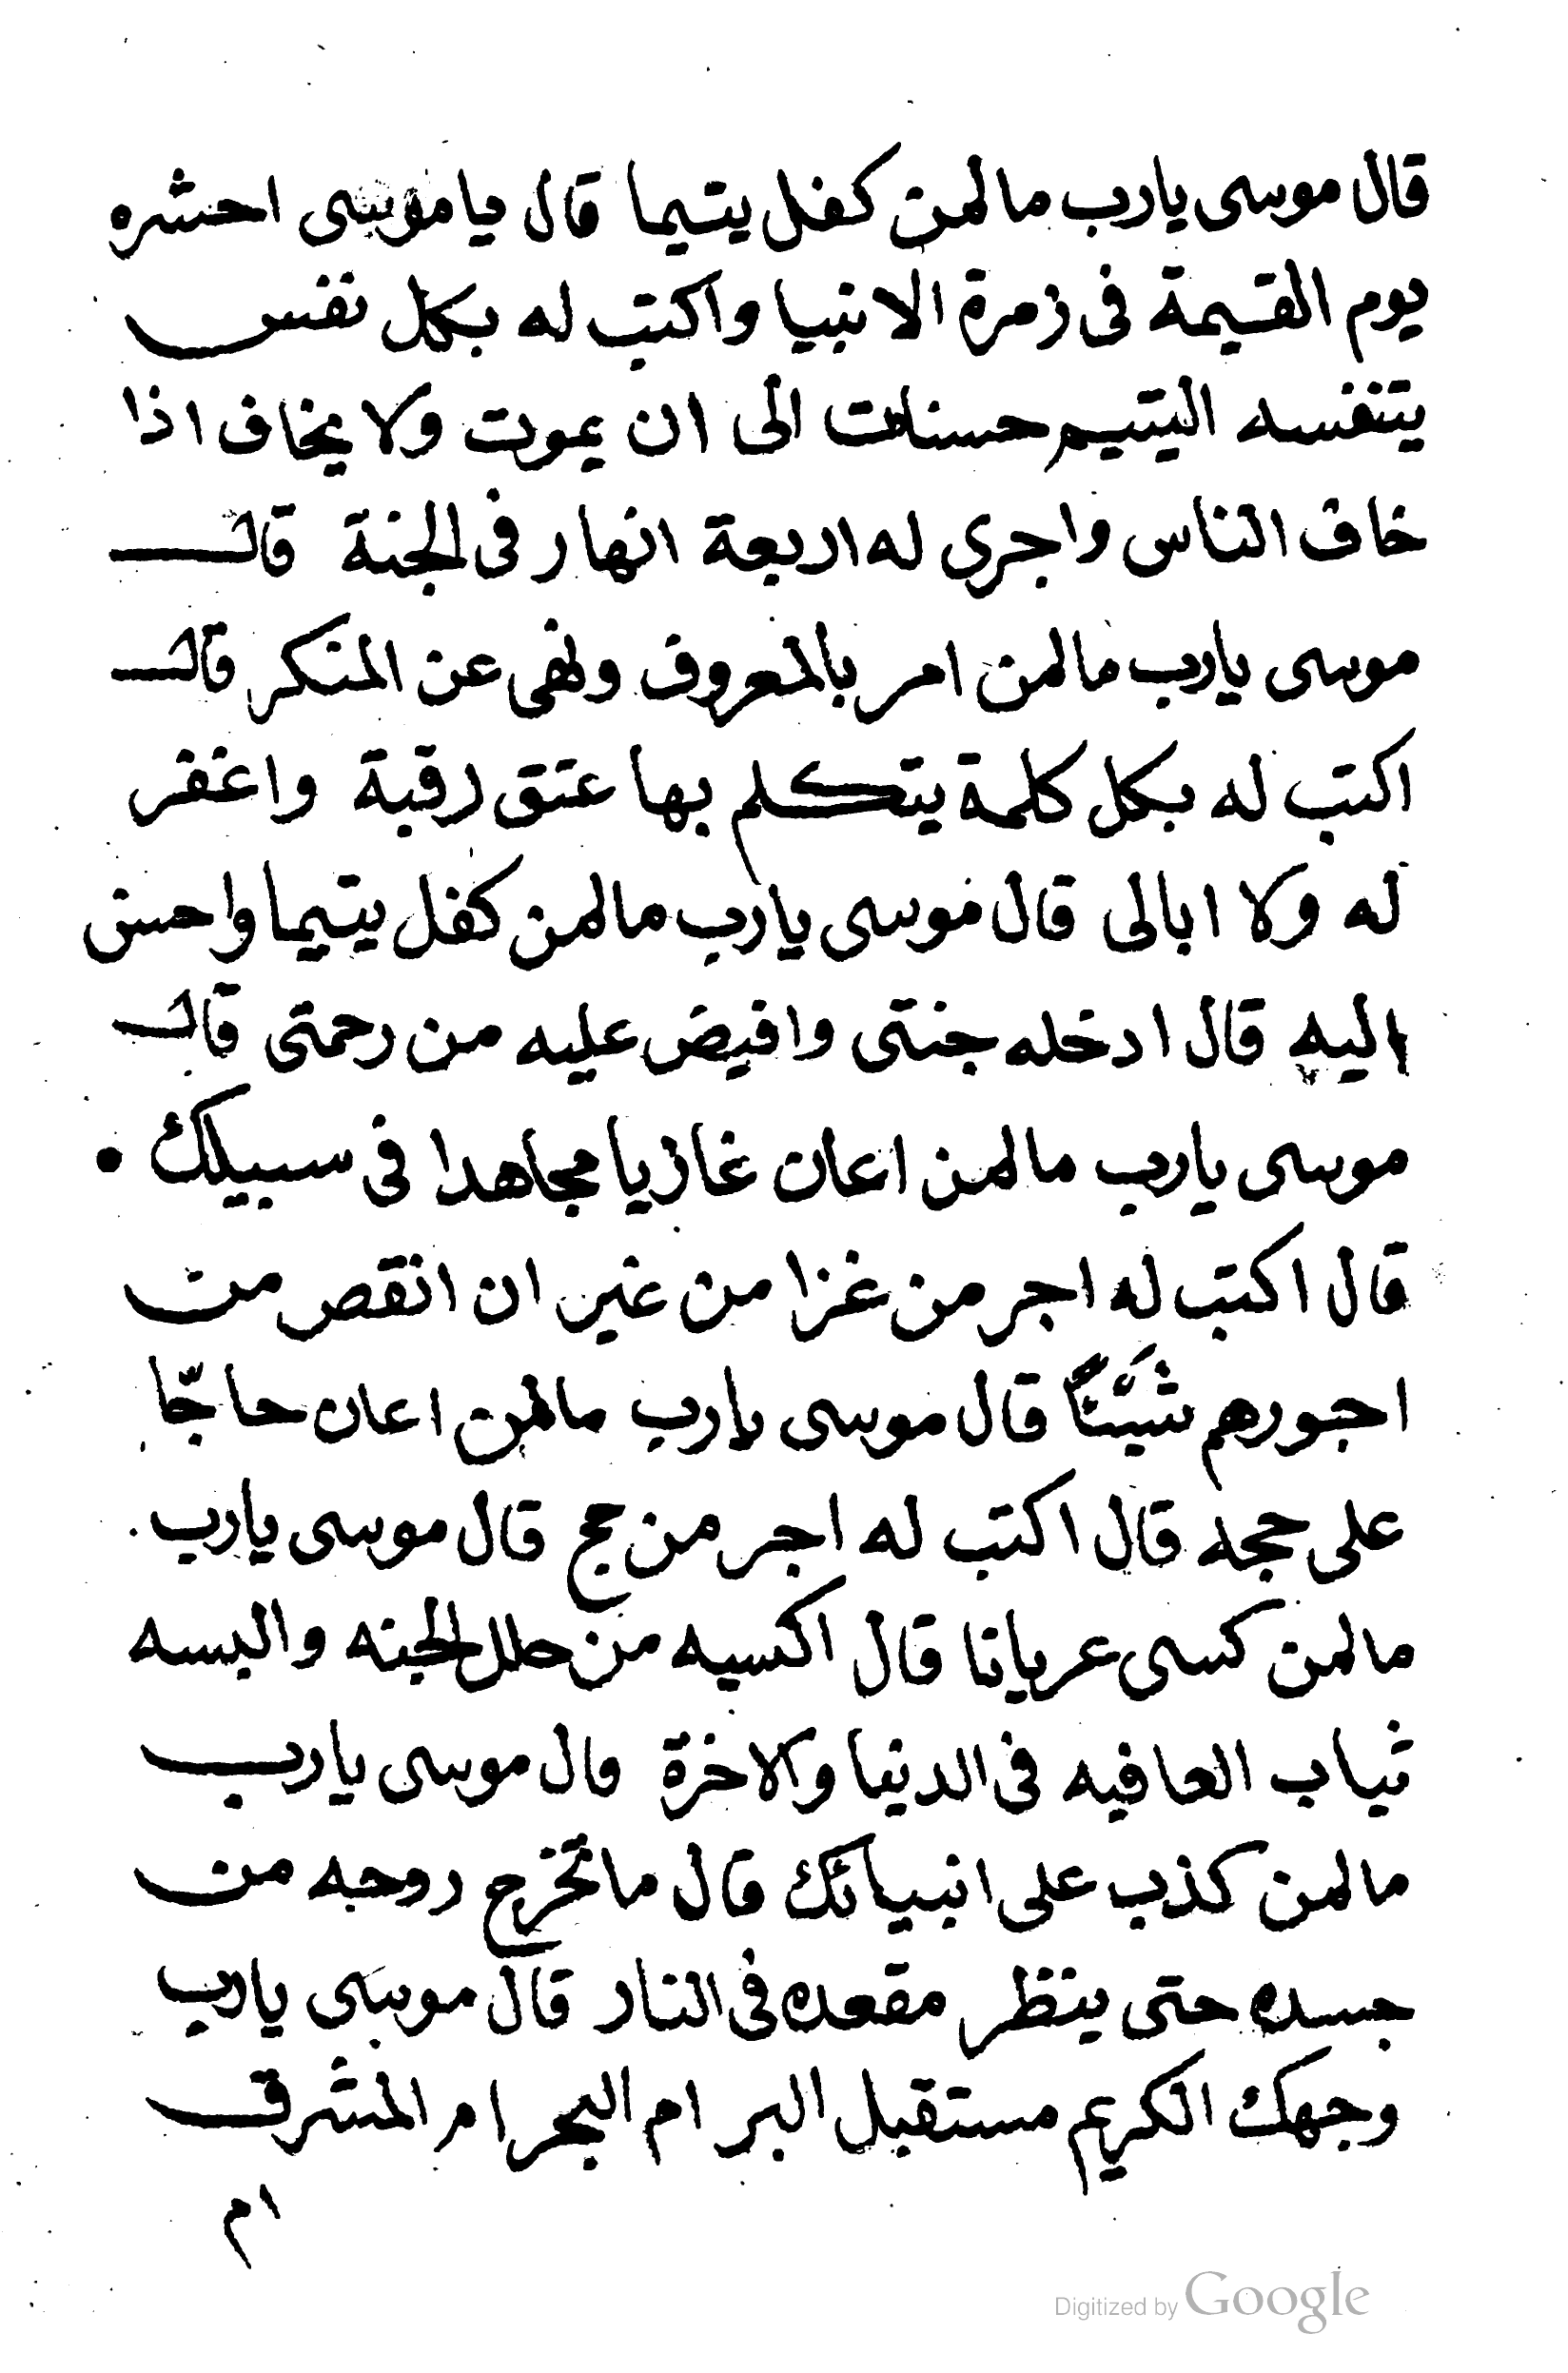 قال موسى يارب مالمن كفل يتيما قال ياموسى احشره
يوم القيمة فى زمرة الانبيا واكتب له بكل نفس
يتنفسه اليتيم حسنات الى ان يموت ولا يخاف اذا
خاف الناس واجرى له اربعة انهار فى الجنة قال
موسى يارب مالمن امر بالمعروف ونهى عن المنكر قال
اكتب له بكل كلمة يتكلم بها عتق رقبة واغفر
له ولا ابالى قال موسى يارب مالمن كفل يتيما واحسن
اليه قال ادخله جنتى وافيض عليه من رحمتى قال
موسى يارب مالمن اعان غازيا مجاهدا فى سبيلك •
قال اكتب له اجر من غزا من غير ان انقص من
اجورهم شيئًا قال موسى يارب مالمن اعان حاجّا
على حجه قال اكتب له اجر من حج قال موسى يارب
مالمن كسى عريانا قال اكسيه من حلل الجنه والبسه
ثياب العافيه فى الدنيا والاخرة قال موسى يارب
مالمن كذب على انبيائك قال ماتخرج روحه من
جسده حتى ينظر مقعده فى النار قال موسى يارب
وجهك الكريم مستقبل البر ام البحر ام المشرق
ام
Digitized by Google